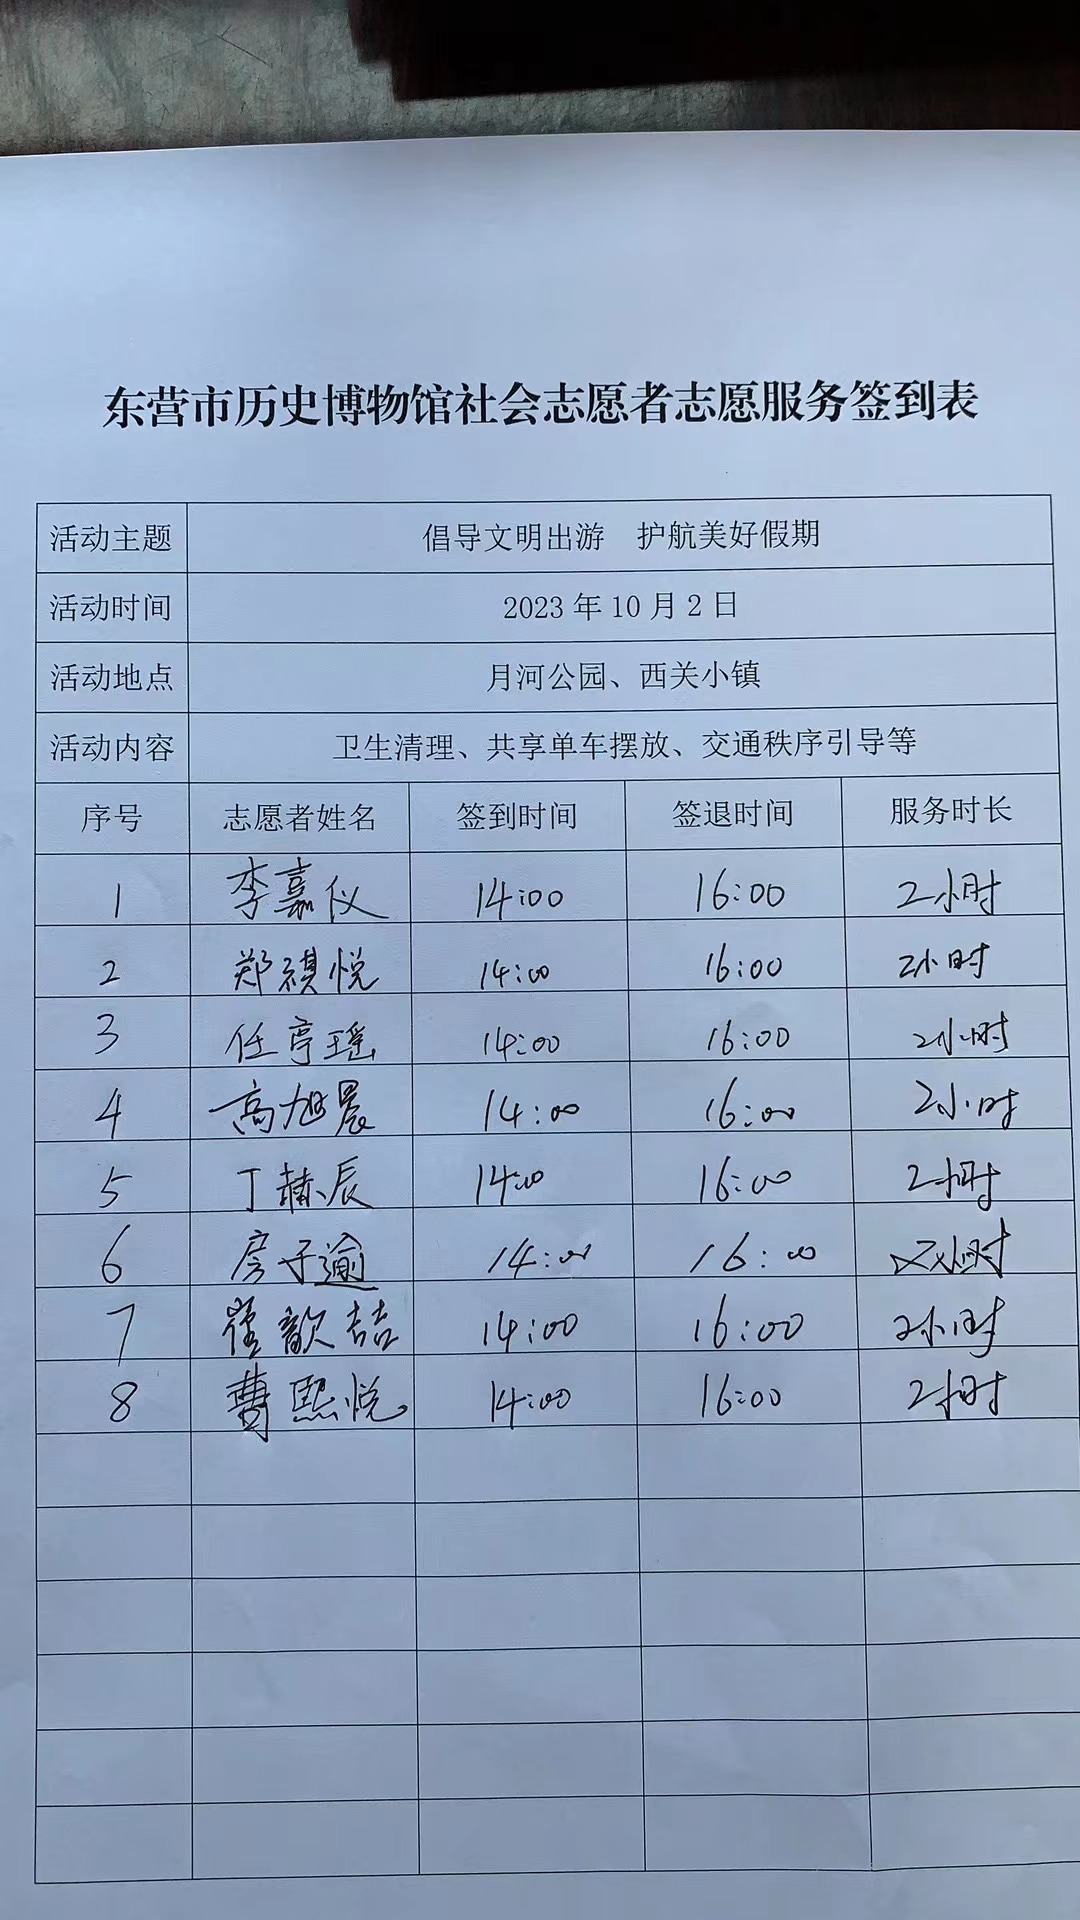 东营市历史博物馆社会志愿者志愿服务签到表
活动主题 倡导文明出游 护航美好假期
活动时间 2023年10月2日
活动地点 月河公园、西关小镇
活动内容 卫生清理、共享单车摆放、交通秩序引导等
序号 志愿者姓名 签到时间 签退时间 服务时长
1 李嘉仪 14:00 16:00 2小时
2 郑祺悦 14:00 16:00 2小时
3 任亭瑶 14:00 16:00 2小时
4 高旭晨 14:00 16:00 2小时
5 丁赫辰 14:00 16:00 2小时
6 房子逾 14:00 16:00 2小时
7 崔歆喆 14:00 16:00 2小时
8 曹熙悦 14:00 16:00 2小时